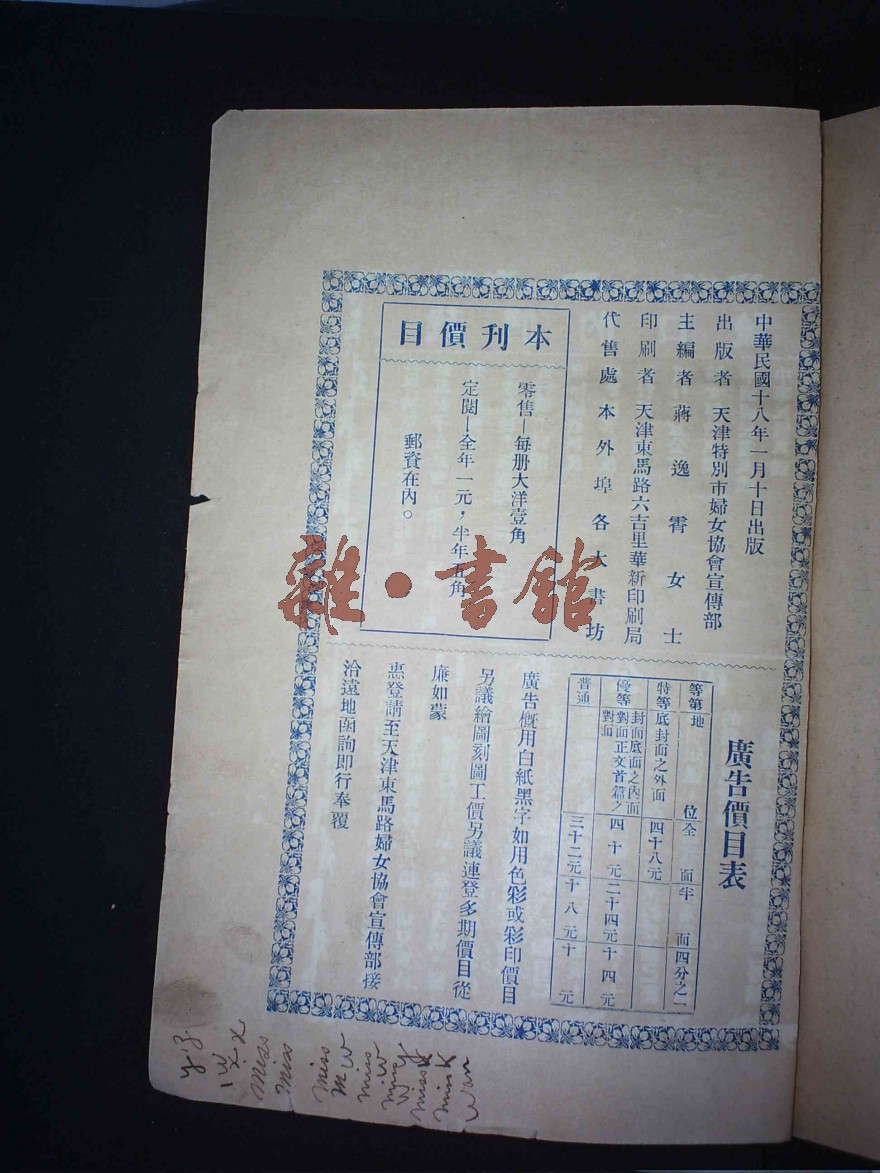 中華民國十八年一月十日出版
出版者 天津特別市婦女協會宣傳部
主編者 蔣逸霄女士
印刷者 天津東馬路六吉里華新印刷局
代售處 本外埠各大書坊
本刊價目
零售—每册大洋壹角
定閱—全年一元，半年五角
郵資在內。
廣告價目表
等第 地位 全面 半面 四分之一
特等 底封面之外面 四十八元
優等 封面底面之內面對面正文首篇之對面 四十元 二十四元 十四元
普通 三十二元 十八元 十元
廣告概用白紙黑字如用色彩或彩印價目
另議繪圖刻圖工價另議連登多期價目從
廉如蒙
惠登請至天津東馬路婦女協會宣傳部接
洽遠地函詢即行奉覆
雜·書館
miss
miss
miss
miss
miss
wan